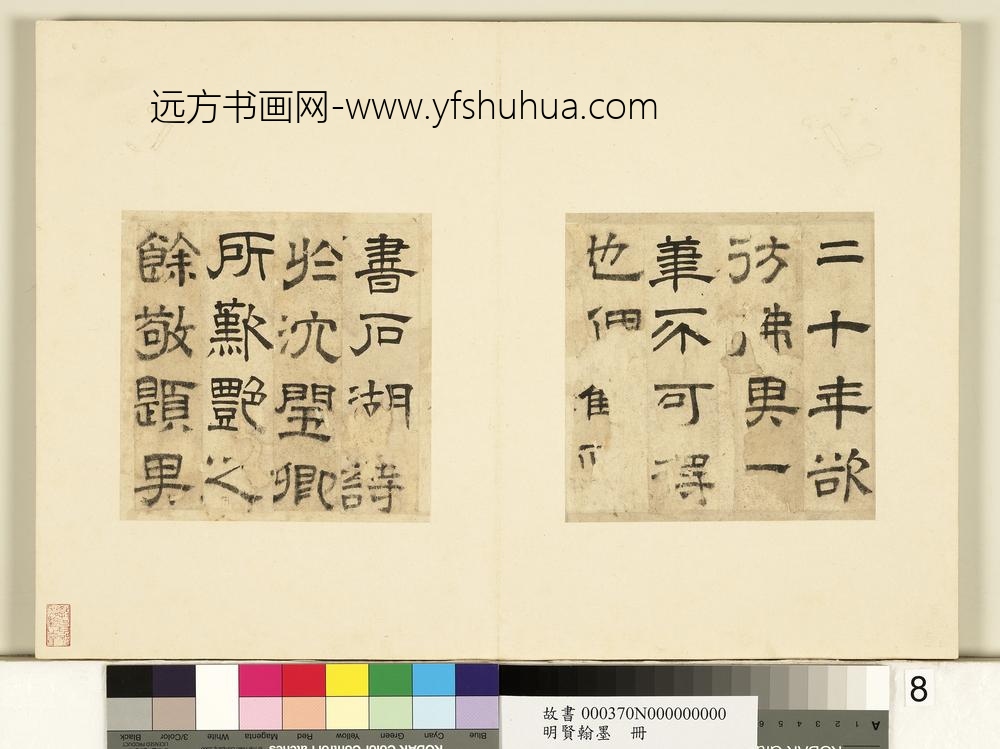 远方书画网-www.yfshuhua.com
二十年欲
彷彿其一
筆不可得
也
惟
書石湖詩
於沈閏卿
所歎艷之
餘敬題其
8
故書 000370N000000000
明賢翰墨 冊
Black
3/Color
White
Magenta
Red
Yellow
Green
Cyan
Blue
A 1 2 3 4 5 6